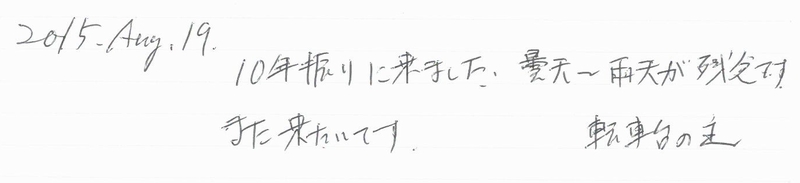 2015. Aug. 19.
10年振りに来ました. 曇天〜雨天が残念です
また来たいです. 転車台の主